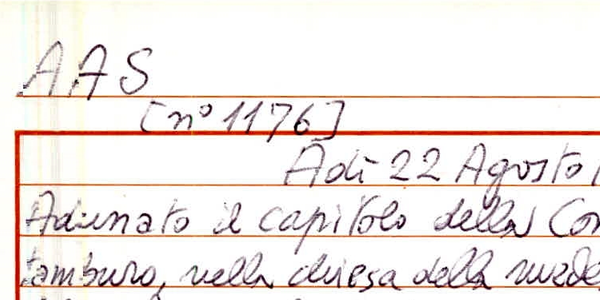 AAS
[n° 1176]
Adì 22 Agosto
Adunato il capitolo della Con
tamburo, nella chiesa della mede